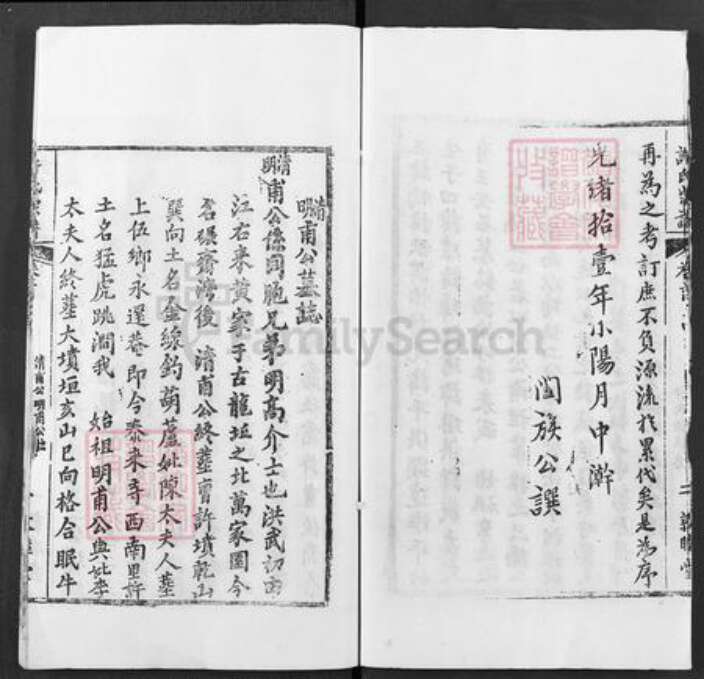 再為之考訂庶不負源流於累代矣是為序
光緒拾壹年小陽月中澣
闔族公譔
清明甫公墓誌
清明甫公係同胞兄弟明高介士也洪武初由
江右來黃家于古龍坵之北萬家圍今
名碾齋灣後 清甫公終塟曹許墳乾山
巽向土名金線釣葫蘆妣陳太夫人塟
上伍鄉永還菴即今泰来寺西南里許
土名猛虎跳澗我 始祖明甫公與妣李
太夫人終塟大墳垣亥山巳向格合眠牛
清甫公明甫公
FamilySearch